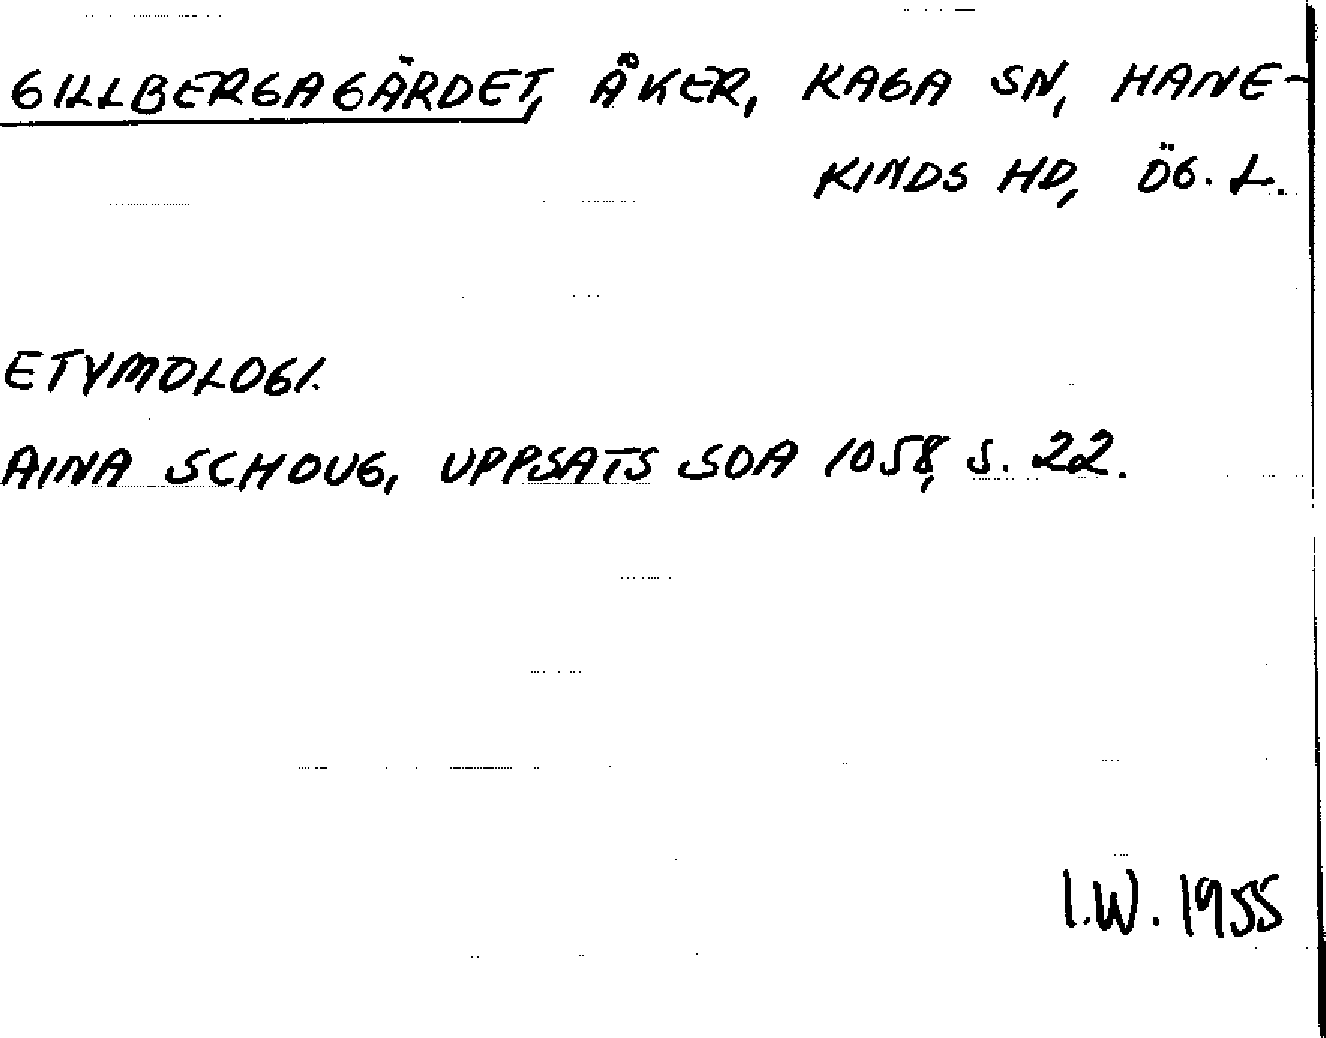 GILLBERGAGÄRDET, ÅKER, KAGA SN, HANE-
KINDS HD, ÖG. L.
ETYMOLOGI.
AINA SCHOUG, UPPSATS SOA 1058, S. 22.
I.W. 1955